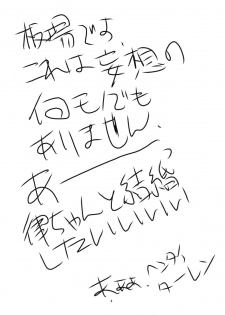 板場です。
これは妄想の
何モノでも
ありません。
あーーーっ
律ちゃんと結婚
したいいいいい
あ、ああ、ヘンタイ
ターレン